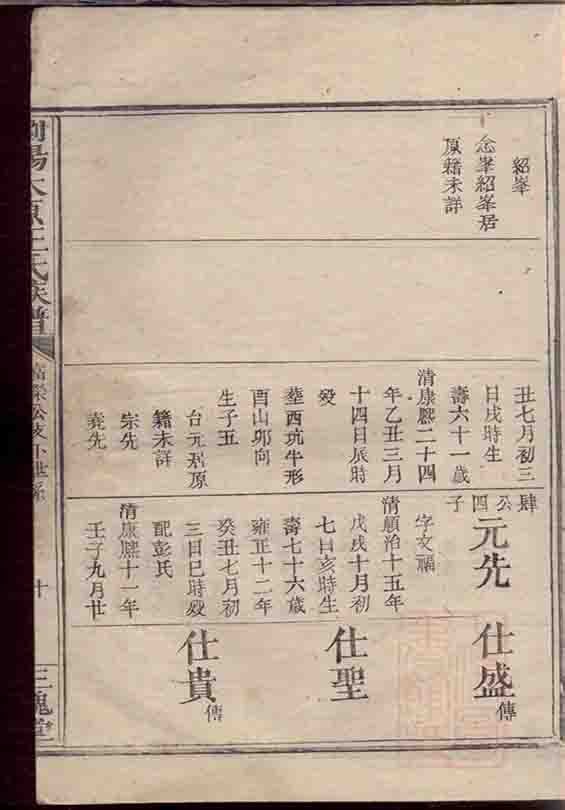 紹峯
念峯紹峯居
原籍未詳
丑七月初三
日戌時生
壽六十一歲
清康熙二十四
年乙丑三月
十四日辰時
歿
塟西坑牛形
酉山卯向
生子五
台元居原
籍未詳
宗先
堯先
肆公四子
元先
字文福
清順治十五年
戊戌十月初
七日亥時生
壽七十六歲
雍正十二年
癸丑七月初
三日巳時歿
配彭氏
清康熙十一年
壬子九月廿
仕盛傳
仕聖
仕貴傳
瀏陽太原王氏族譜
公支下世系
十
三槐堂